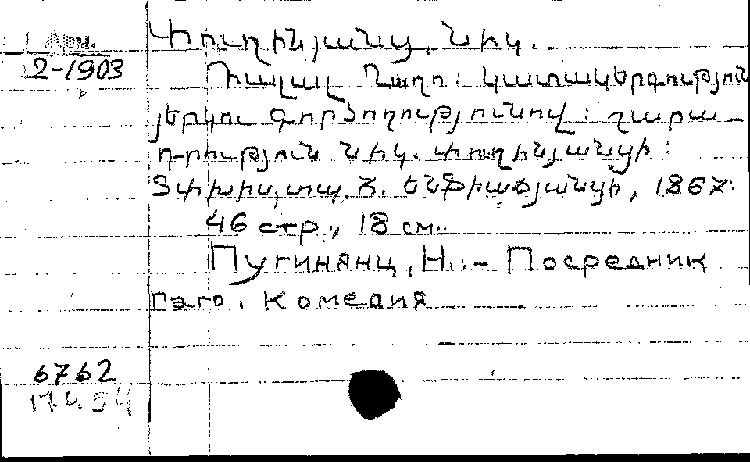 Арм.
2-1903
Փուղինյանց, Նիկ.
Դալալ Ղաղո: Կատակերգություն
յերկու գործողությունով: շարա-
դրություն Նիկ. Փուղինյանցի:
Տփխիս, տպ. Հ. Ենֆիաճյանցի, 1867:
46 стр., 18 см.
Пугинянц, Н. - Посредник
Гаго. Комедия
6762